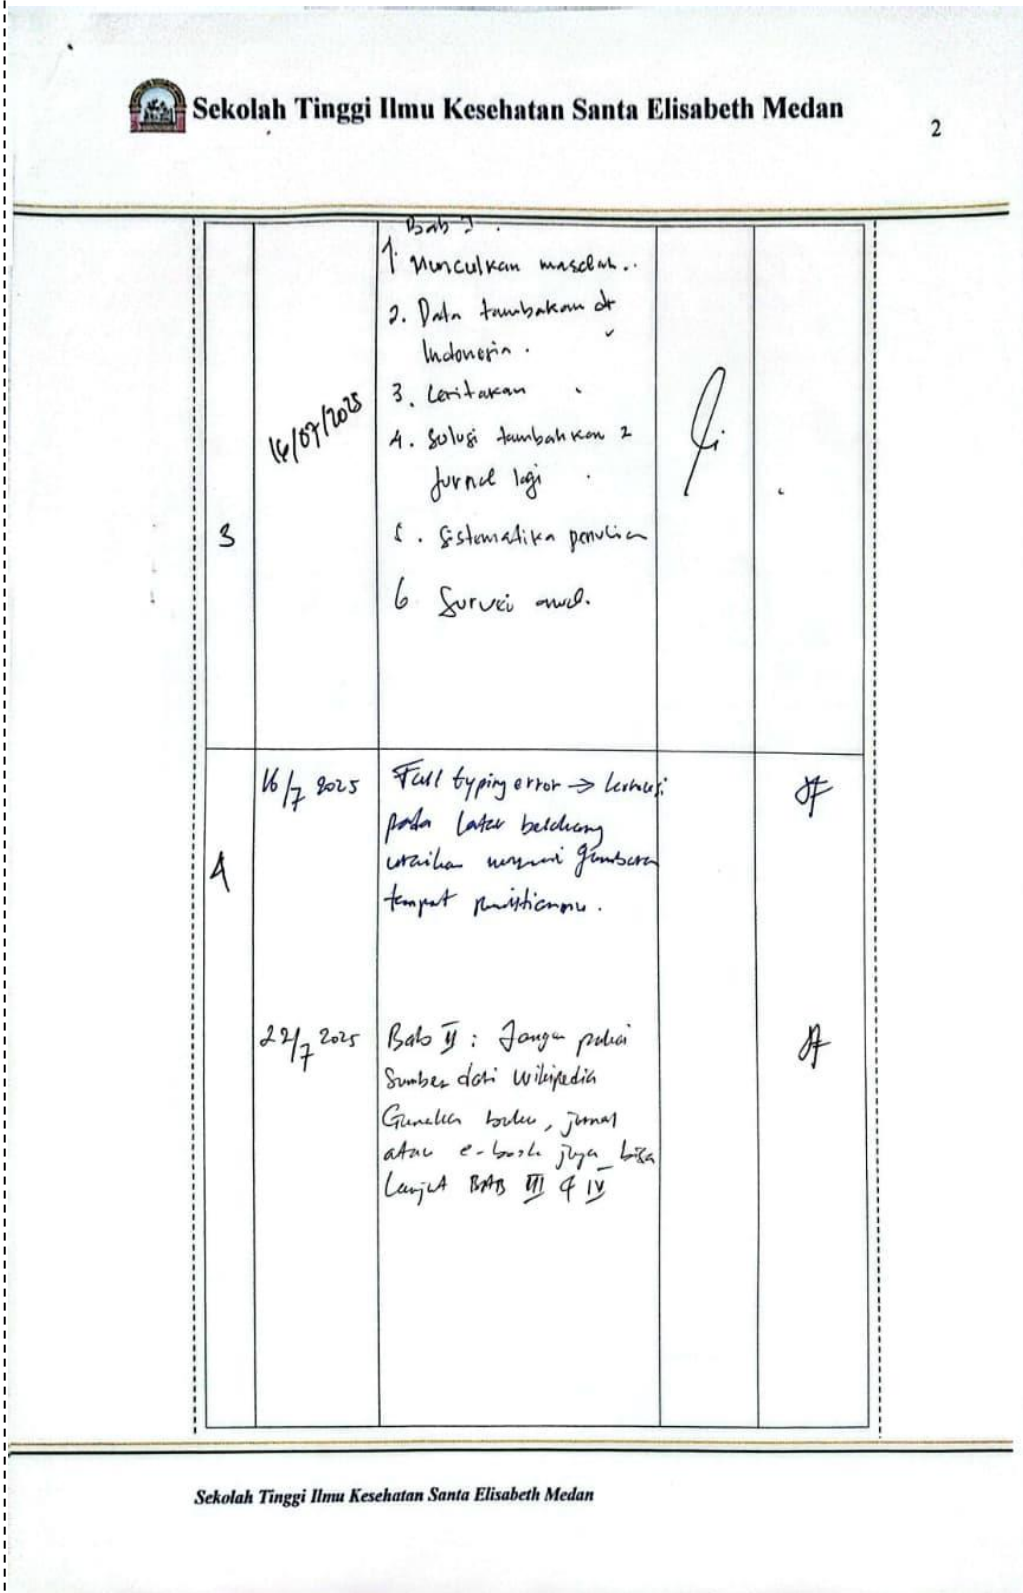 Sekolah Tinggi Ilmu Kesehatan Santa Elisabeth Medan
2
Bab I.
1 Munculkan masalah..
2. Data tambakan dr
Indonesia.
3. Ceritakan
16/07/2025
4. Solusi tambahkan 2
jurnal lagi
3
5. Sistematika
6 Survei awal.
16/7 2025
Full typing error →
pada latar belakang
4
uraikan gambaran
tempat
22/7 2025
Bab II : Jangan pakai
Sumber dari Wikipedia
Gunakan buku, jurnal
atau e-book juga bisa
Lanjut BAB III & IV
Sekolah Tinggi Ilmu Kesehatan Santa Elisabeth Medan